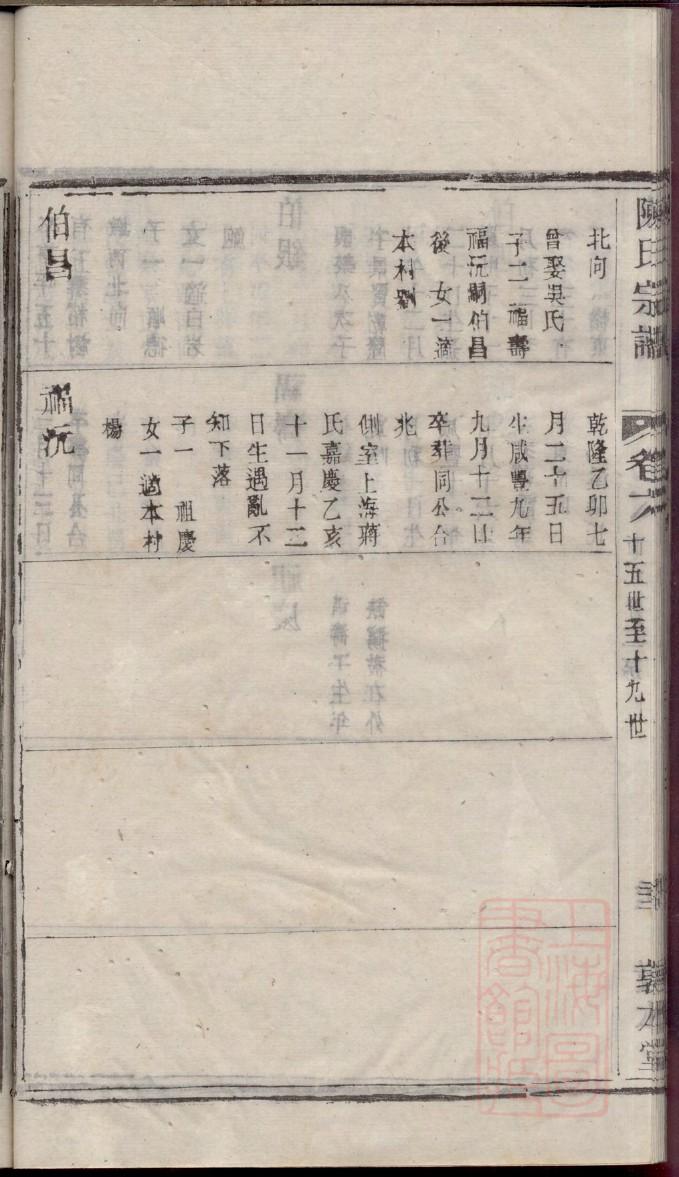 陳氏宗譜
卷六
十五世至十九世
敦本堂
北向
曾娶吳氏
子二 福壽
福沅嗣伯昌
後 女一適
本村劉
伯昌
乾隆乙卯七
月二十五日
生咸豐九年
九月十二日
卒葬同公台
兆
側室上海蔣
氏嘉慶乙亥
十一月十二
日生遇亂不
知下落
子一 祖慶
女一適本村
楊
福沅
上海圖
書館藏